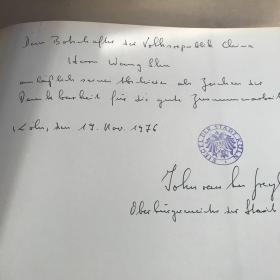 Dem Botschafter der Volksrepublik China
Herrn Wang Shu
anläßlich seines Abschieds als Zeichen der
Dankbarkeit für die gute Zusammenarbeit
Köln, den 19. Nov. 1976
SIEGEL DER STADT KÖLN
John van Nes Ziegler
Oberbürgermeister der Stadt